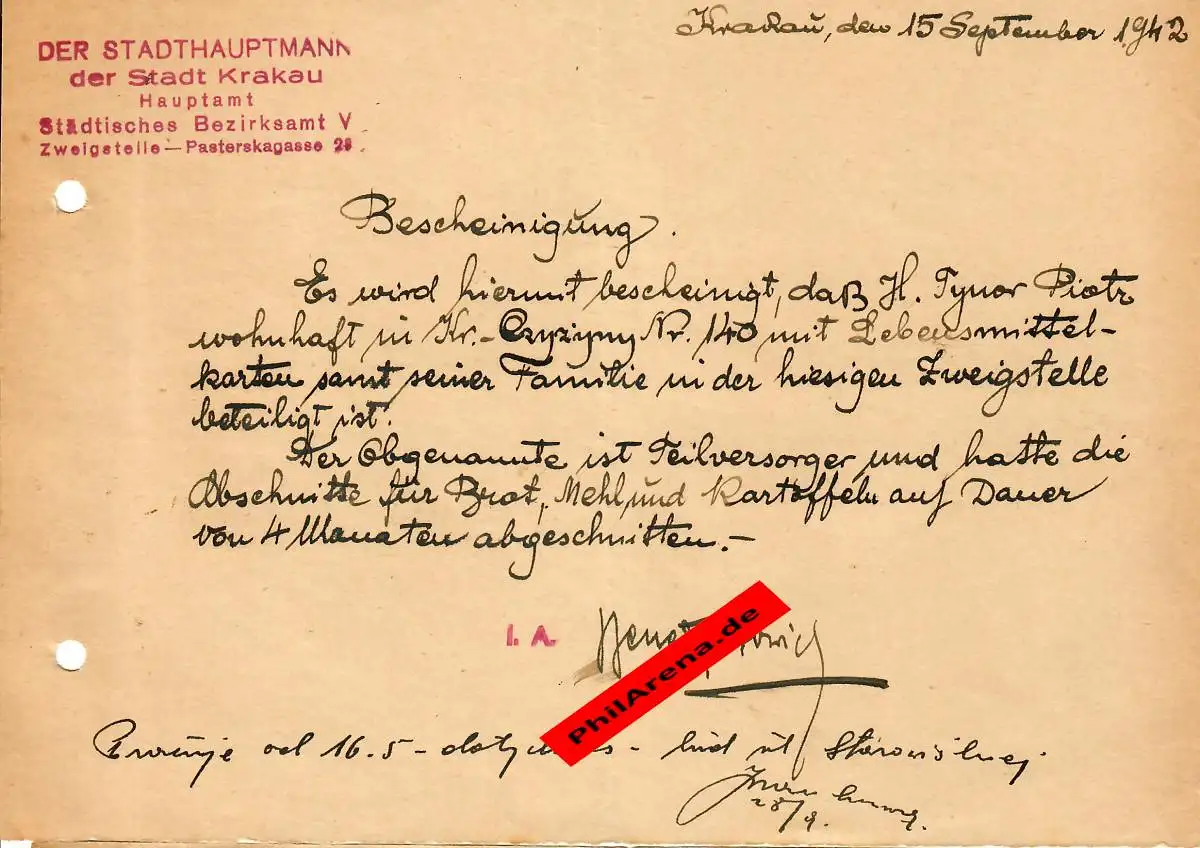 Krakau, den 15 September 1942
DER STADTHAUPTMANN
der Stadt Krakau
Hauptamt
Städtisches Bezirksamt V
Zweigstelle—Pasterskagasse
Bescheinigung.
Es wird hiermit bescheinigt, daß H. Tynor Piotr
wohnhaft in Kr.-Czyżyny Nr. 140 mit Lebensmittel-
karten samt seiner Familie in der hiesigen Zweigstelle
beteiligt ist.
Der Obgenannte ist Teilversorger und hatte die
Abschnitte für Brot, Mehl und Kartoffeln auf Dauer
von 4 Monaten abgeschnitten.-
I. A.
PhilArena.de
od 16.5 -
28/9.